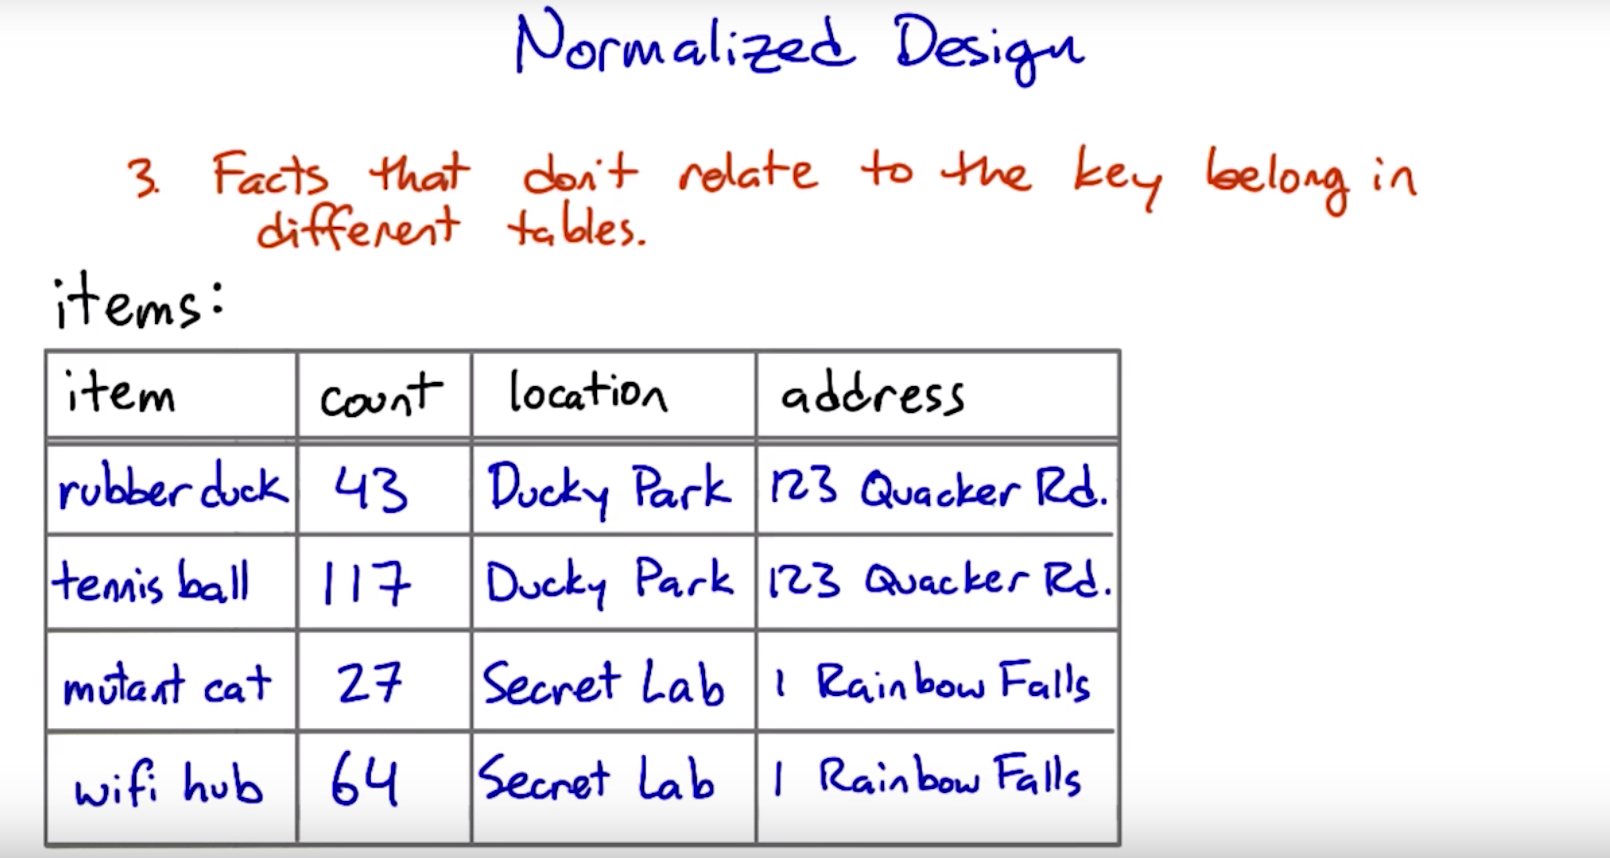 Normalized Design
3. Facts that don't relate to the key belong in
different tables.
items:
item count location address
rubber duck 43 Ducky Park 123 Quacker Rd.
tennis ball 117 Ducky Park 123 Quacker Rd.
mutant cat 27 Secret Lab 1 Rainbow Falls
wifi hub 64 Secret Lab 1 Rainbow Falls